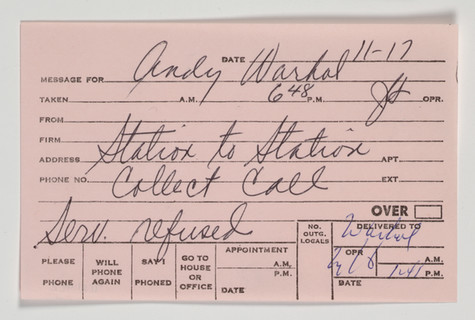 DATE 11-17
MESSAGE FOR Andy Warhol
TAKEN A.M. 6 48 P.M. OPR.
FROM
FIRM Station to Station
ADDRESS APT.
PHONE NO. Collect Call EXT.
OVER
Serv. refused
NO. OUTG. LOCALS
DELIVERED TO
Warhol
PLEASE PHONE
WILL PHONE AGAIN
SAY I PHONED
GO TO HOUSE OR OFFICE
APPOINTMENT
A.M.
P.M.
DATE
OPR
A.M.
1:41 P.M.
DATE